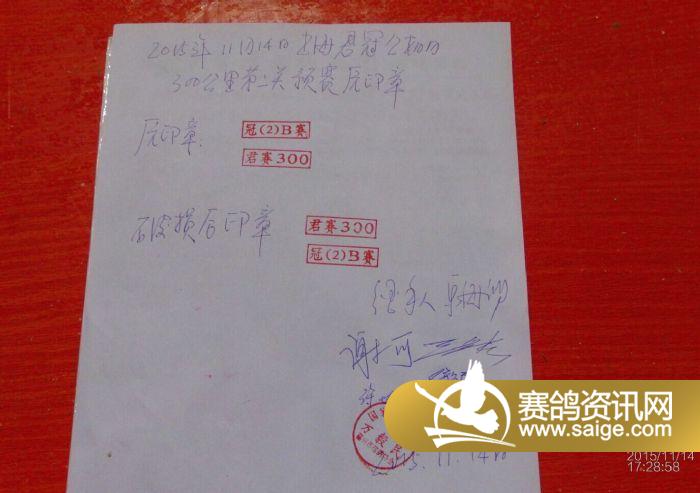 2015年11月14日上海君冠公棚
300公里第二关预赛原印章
原印章:
冠(2)B赛
君赛300
破损后印章
君赛300
冠(2)B赛
经手人
谢
徐
2015.11.14日
赛鸽资讯网
www.saige.com
2015/11/14
17:28:58